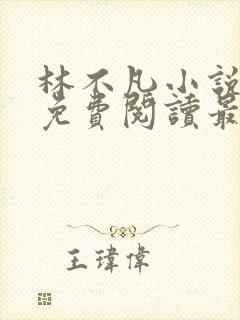 林不凡小說
免費閱讀最
王瑋偉